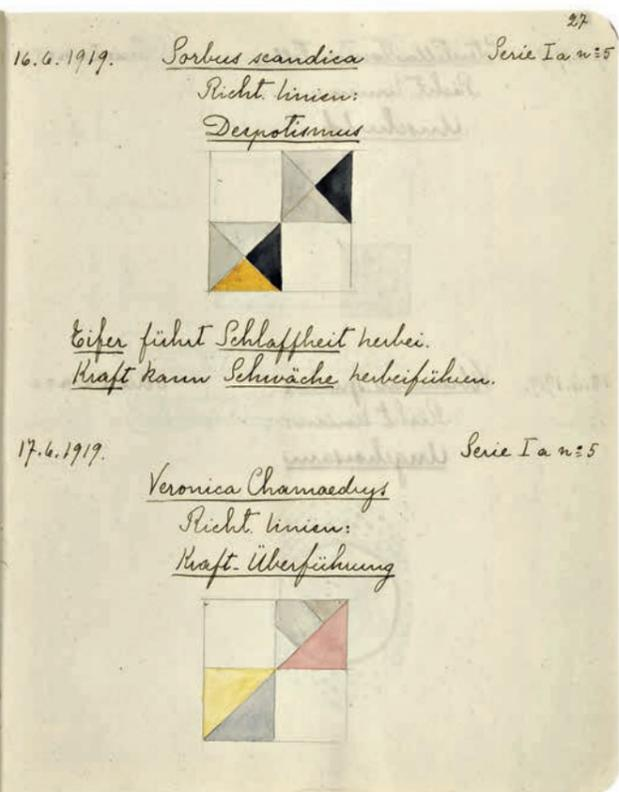 27
16.6.1919. Sorbus scandica Serie I a n:5
Richt. linien:
Despotismus
Eifer führt Schlaffheit herbei.
Kraft kann Schwäche herbeiführen.
17.6.1919. Serie I a n:5
Veronica Chamaedrys
Richt. linien:
Kraft-Überführung